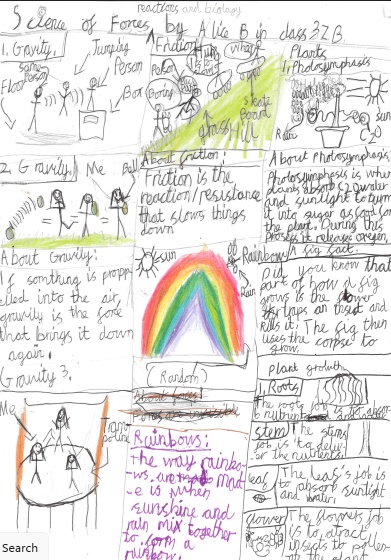 reactions and biology
Science of Forces by Alice B in class 3ZB
1. Gravity.
Jumping
Person
same
Person
Floor
Box
2. Gravity.
Me
Ball
About Gravity:
If somthing is prop
elled into the air,
gravity is the force
that brings it down
again.
Gravity 3.
Me
Tram
poline
Friction
Person
Grass
Hill
Skate
Board
About friction:
Friction is the
reaction/resistance
that slows things
down
Sun
Rainbow
Rain
(Random)
About fores
Fores are invisible
Rainbows:
The way rainbo-
ws are mad
-e is when
sunshine and
rain mix together
to form a
rainbow.
Plants
1. Photosymphasis
Sun
Rain
About Photosymphasis
Photosymphasis is whe
plants absorb CO2 water
and sunlight to turn
it into sugar as food for
the plant. During this
process it releases oxegen.
A fig fact.
Did you know that
part of how a fig
grows is the flower
traps an insect and
kills it. The fig then
uses the corpse to
grow.
plant growth
1. Roots
The roots job
stem
The stems
job is to deliv-
er the nutrients.
leaf
The leaf's job is
to absorb sunlight
and water.
flower
The flowers job
is to attract
insects to pollen-
Search